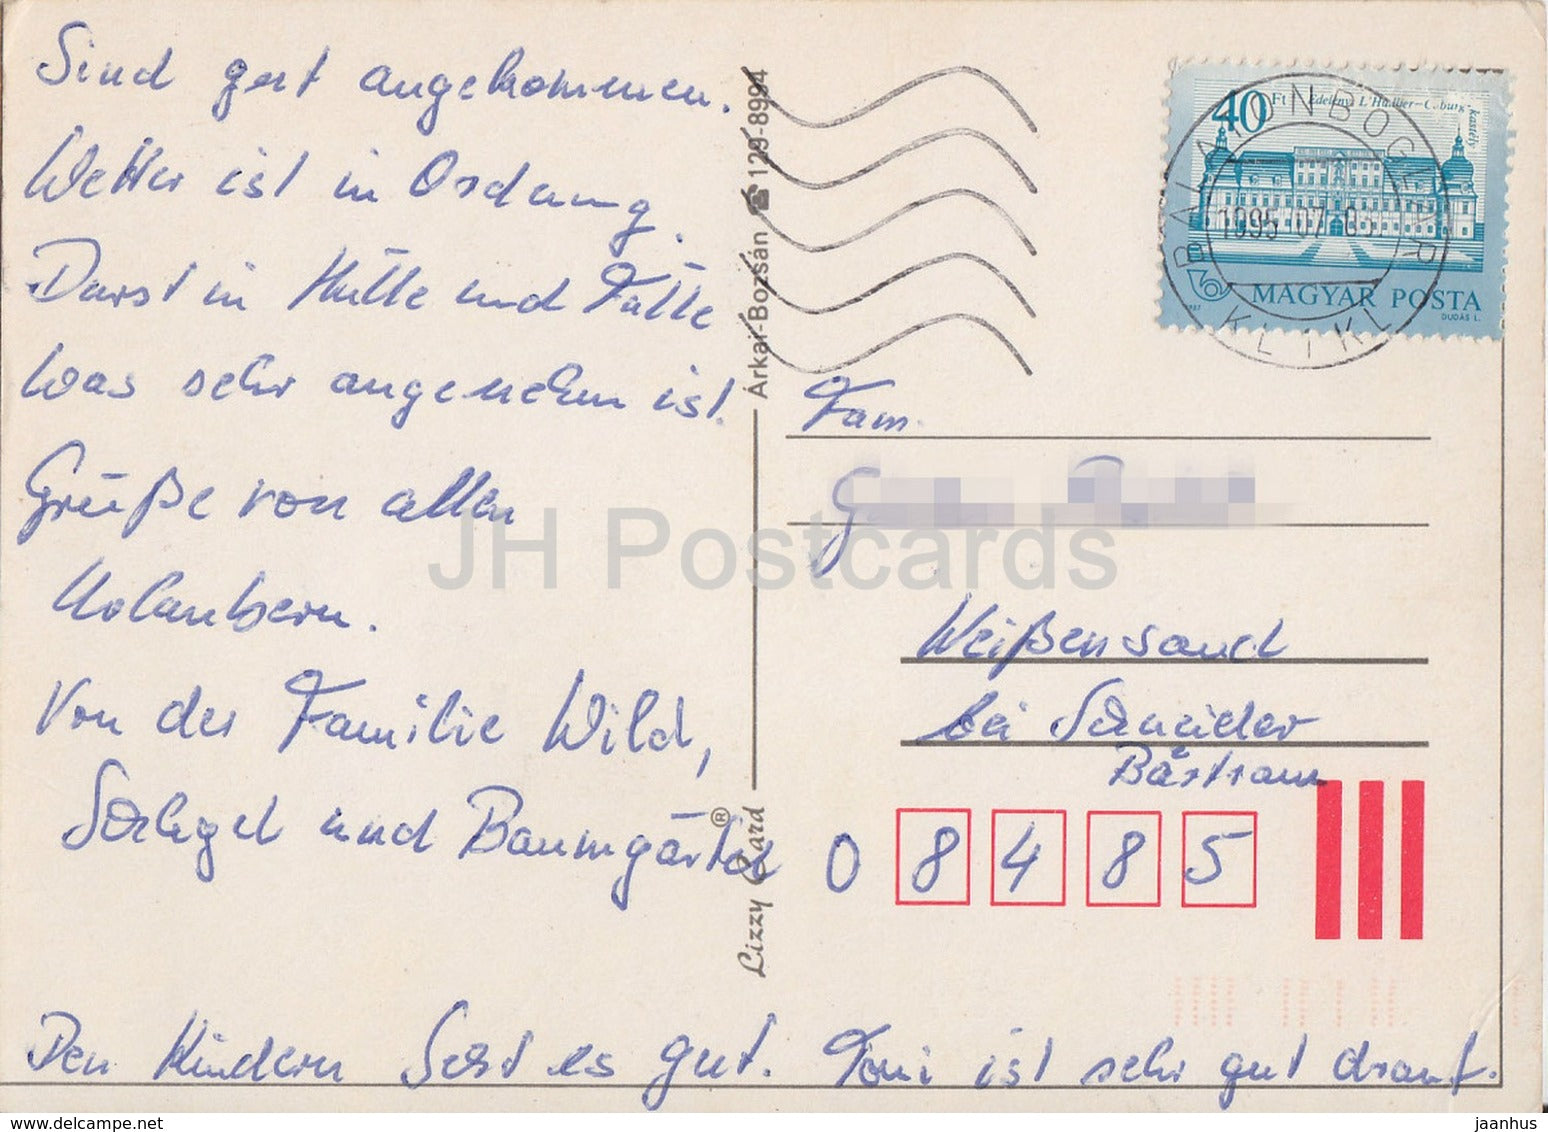 Sind gut angekommen.
Wetter ist in Ordnung.
Durst in Hülle und Fülle
was sehr angenehm ist.
Grüße von allen
Urlaubern.
Von der Familie Wild,
Schlegel und Baumgärtel
Den Kindern geht es gut. Toni ist sehr gut drauf.
Árkai-Bozsán ☎ 129-8994
Lizzy Card ®
40 Ft Edelényi L'Huillier-Coburg-kastély
MAGYAR POSTA
1987 DUDÁS L.
BALATONBOGLÁR
1995 07 0
Fam.
Weißensand
bei Schneider
Bärbram
0 8485
JH Postcards
jaanhus